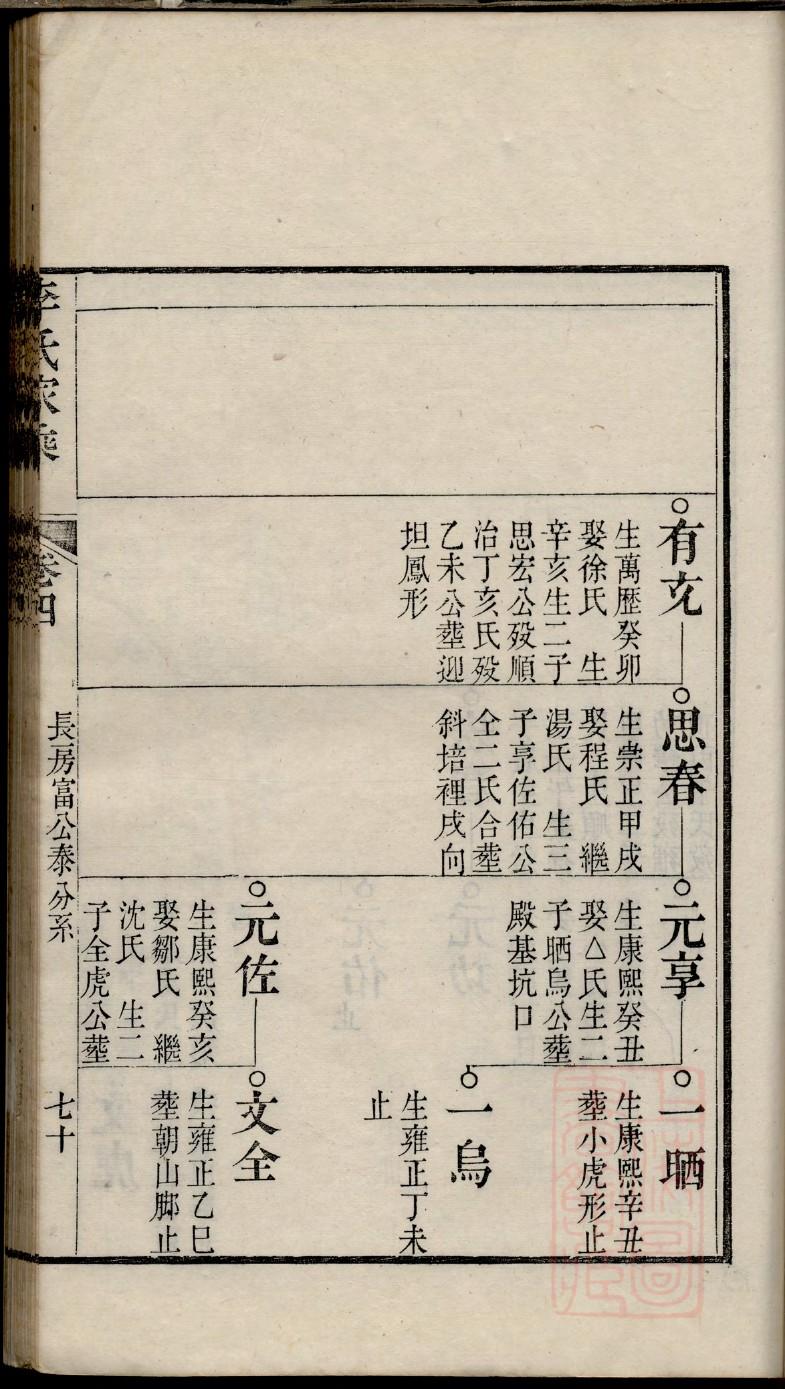 有㐪
生萬歷癸卯
娶徐氏　生
辛亥生二子
思宏公殁順
治丁亥氏殁
乙未公塟迎
坦鳳形
思春
生崇正甲戌
娶程氏　繼
湯氏　生三
子享佐佑公
仝二氏合塟
斜培裡戌向
元享
生康熙癸丑
娶△氏生二
子晒烏公塟
殿基坑口
元佐
生康熙癸亥
娶鄒氏　繼
沈氏　生二
子全虎公塟
一晒
生康熙辛丑
塟小虎形止
一烏
生雍正丁未
止
文全
生雍正乙巳
塟朝山脚止
李氏家乘
卷四
長房富公泰分系
七十